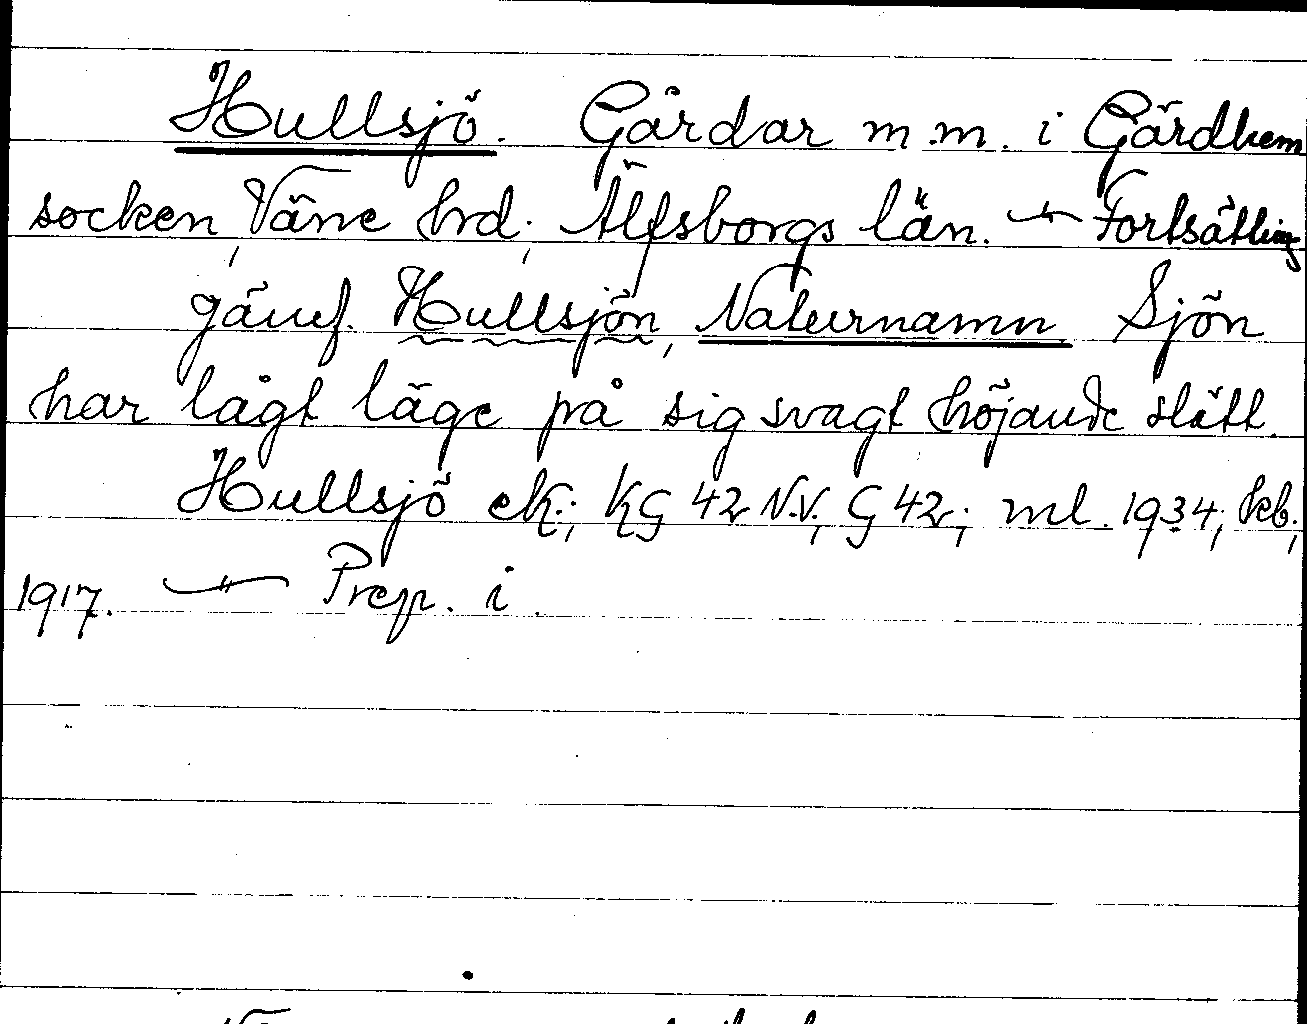 Hullsjö. Gårdar m.m. i Gärdhem
socken, Väne hrd; Älfsborgs län. —"— Fortsättning
jämf. Hullsjön, Naturnamn Sjön
har lågt läge på sig svagt höjande slätt.
Hullsjö ek.; KG 42 N.V.; G 42; ml. 1934; kb.;
1917. —"— Prep. i.